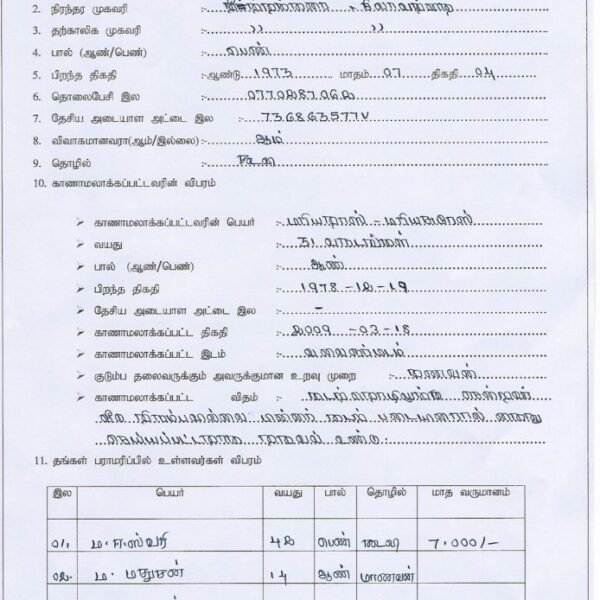 2. நிரந்தர முகவரி :-
3. தற்காலிக முகவரி :- ,, ,,
4. பால் (ஆண்/பெண்) :- பெண்
5. பிறந்த திகதி :-ஆண்டு 1973 மாதம் 07 திகதி 04
6. தொலைபேசி இல :-
7. தேசிய அடையாள அட்டை இல :- 736863577V
8. விவாகமானவரா(ஆம்/இல்லை):- ஆம்
9. தொழில் :-
10. காணாமலாக்கப்பட்டவரின் விபரம்
➢ காணாமலாக்கப்பட்டவரின் பெயர் :-
➢ வயது :- 31 வருடங்கள்
➢ பால் (ஆண்/பெண்) :- ஆண்
➢ பிறந்த திகதி :- 1978-12-19
➢ தேசிய அடையாள அட்டை இல :- -
➢ காணாமலாக்கப்பட்ட திகதி :- 2009-03-18
➢ காணாமலாக்கப்பட்ட இடம் :- வலைஞர்மடம்
➢ குடும்ப தலைவருக்கும் அவருக்குமான உறவு முறை :- கணவன்
➢ காணாமலாக்கப்பட்ட விதம் :- கடல்தொழிலுக்கு சென்றவர்
வீடு திரும்பவில்லை பின்னர் கடல் படையினரால் கைது
செய்யப்பட்டதாக தகவல் உண்டு.
11. தங்கள் பராமரிப்பில் உள்ளவர்கள் விபரம்
இல பெயர் வயது பால் தொழில் மாத வருமானம்
01. ம. ஈஸ்வரி 42 பெண் 7,000/-
02. ம. மதுசன் 14 ஆண் மாணவன்